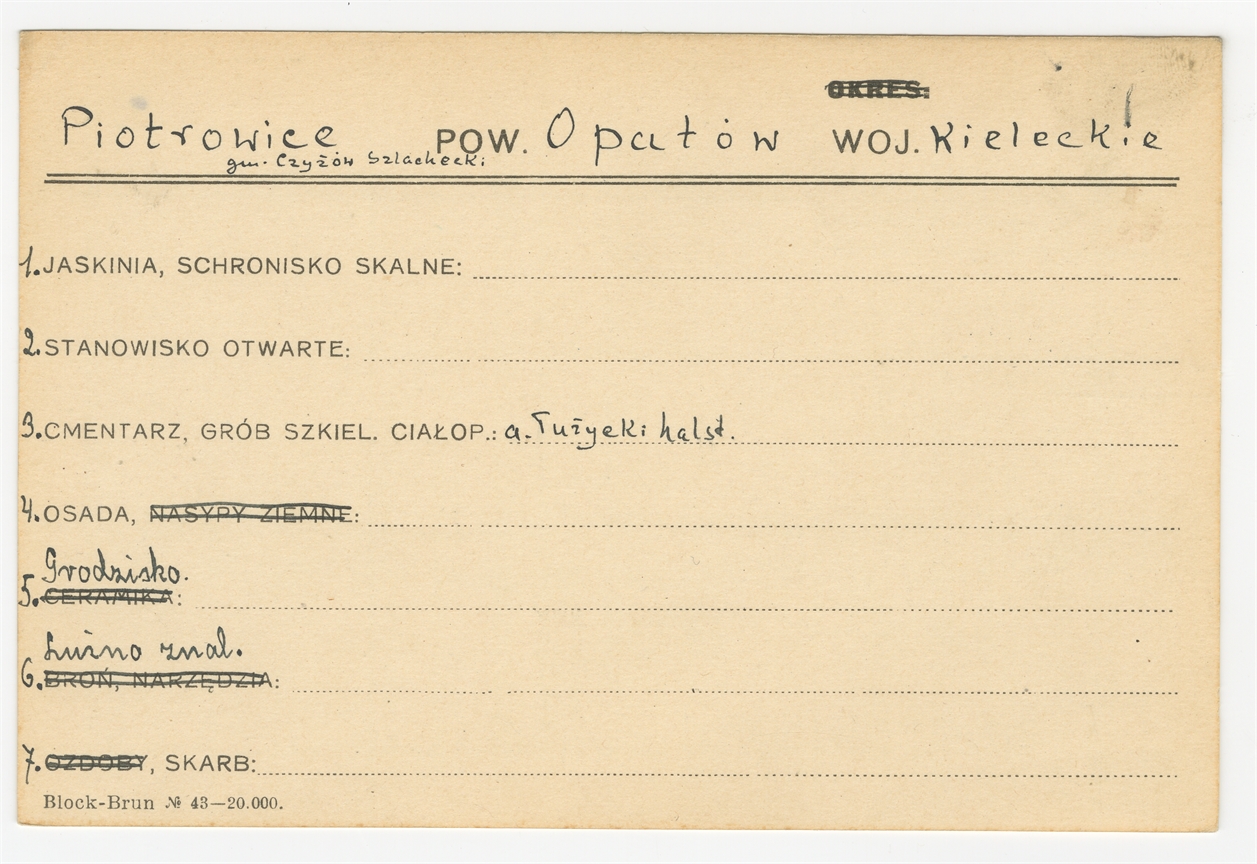 OKRES:
Piotrowice POW. Opatów WOJ. Kieleckie
gm. Czyżów Szlachecki
1. JASKINIA, SCHRONISKO SKALNE:
2. STANOWISKO OTWARTE:
3. CMENTARZ, GRÓB SZKIEL. CIAŁOP.: a. Łużycki halst.
4. OSADA, NASYPY ZIEMNE:
Grodzisko.
5. CERAMIKA:
Luźno znal.
6. BROŃ, NARZĘDZIA:
7. OZDOBY, SKARB:
Block-Brun № 43—20.000.